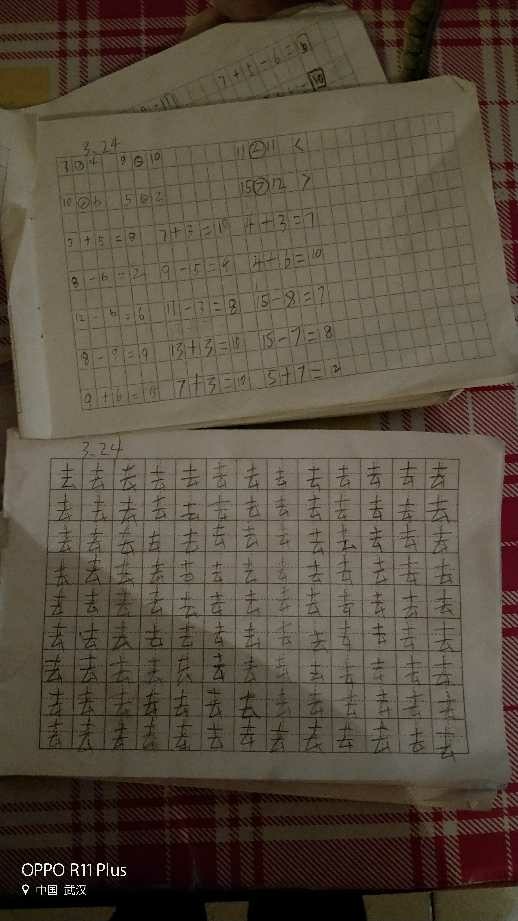 3.24
9 10 11 11 <
10 6 5 2 15 > 12 >
7+3=10 4+3=7
8-6=2 9-5=4 4+6=10
12-6=6 11-3=8 15-8=7
13+3=10 15-7=8
9+6=15 7+3=10 5+7=12
3.24
去去去去去去去去去去去去去
去去去去去去去去去去去去去
去去去去去去去去去去去去去
去去去去去去去去去去去去去
去去去去去去去去去去去去去
去去去去去去去去去去去去去
去去去去去去去去去去去去去
去去去去去去去去去去去去去
去去去去去去去去去去去去去
OPPO R11 Plus
中国 武汉